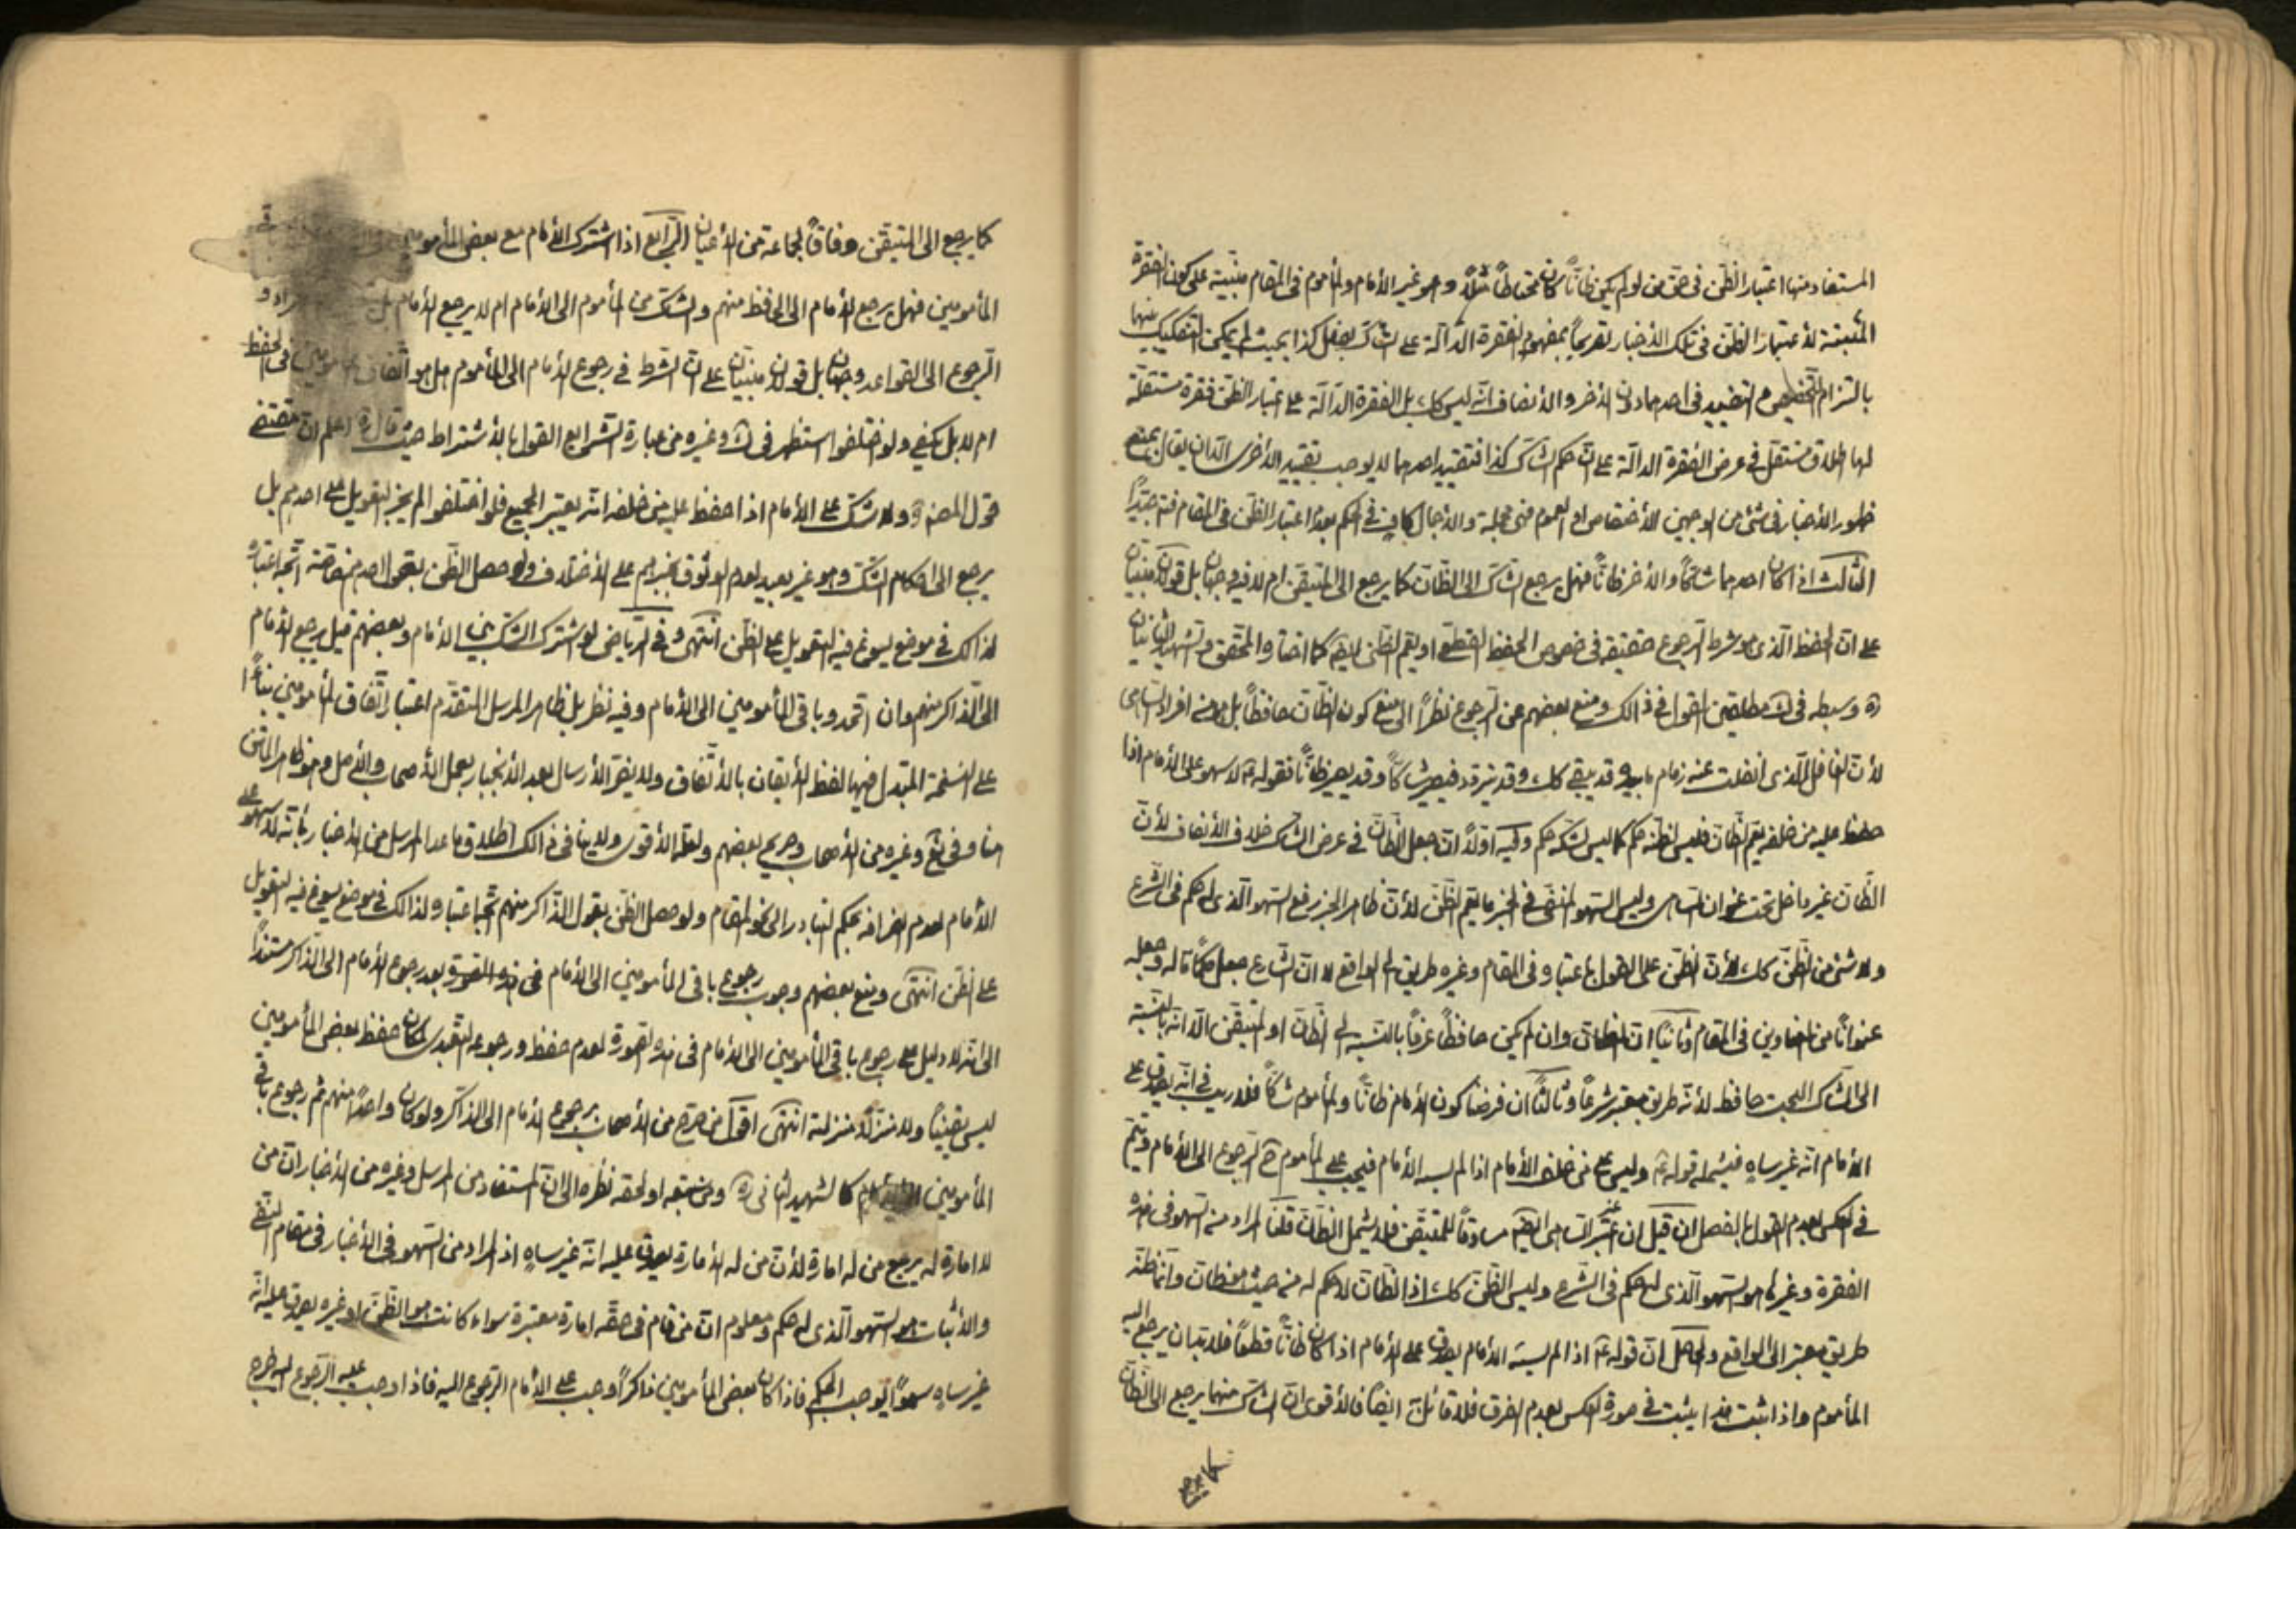 المستفاد منها اعتبار الظن فى حق من لو لم يكن ظانّاً كان محتاطاً مثلاً وهو غير الأمام والمأموم فى المقام مبنية على كون الفقرة
المثبتة لأعتبار الظن فى تلك الأخبار تفريعاً بمفهوم الفقرة الدالة على الشاك يفعل كذا بحيث لم يمكن التفكيك بينها
بالتزام التخصيص والتقييد فى احدهما دون الأخر والأنصاف انه ليس كك بل الفقرة الدالة على اعتبار الظن فقرة مستقلة
لها اطلاق مستقل فى عرض الفقرة الدالة على ان حكم الشاك كذا فتقييد احدهما لا يوجب تقييد الأخرى الا ان يقال بمنع
ظهور الأخبار فى شئ من الوجهين الأختصاص او العموم فهى مجملة والأجمال كاف فى الحكم بعدم اعتبار الظن فى المقام فتدبر جيّداً
الثالث اذا كان احدهما شاكّاً والأخر ظانّاً فهل يرجع الشاك الى الظان كما يرجع الى المتيقن ام لا فيه وجهان بل قولان مبنيان
على ان الحفظ الذى هو شرط الرجوع حقيقة فى خصوص الحفظ القطعى او يعم الظنى ايضا كما اختاره المحقق والشهيد الثانيان
ره وسبطه فى ك مطلقين القول فى ذالك ومنع بعضهم عن الرجوع نظراً الى منع كون الظان حافظاً بل هو من افراد الساهى
لأن الغافل الذى انفلت عنه زمام ما بيده قد يبقى كك وقد يتردد فيصير شاكّاً وقد يصير ظانّاً فقوله ع لا سهو على الأمام اذا
حفظ عليه من خلفه يعم الظان فليس لظنه حكم كما ليس لشكه حكم وفيه اولاً ان جعل الظان فى عرض الشاك خلاف الأنصاف لأن
الظان غير داخل تحت عنوان الساهى وليس السهو المنفى فى الخبر ما يعم الظن لأن ظاهر الخبر رفع السهو الذى له حكم فى الشرع
ولا شئ من الظن كك لأن الظن على القول باعتباره فى المقام وغيره طريق الى الواقع لا ان الشارع جعل حكماً له وجعله
عنواناً من العناوين فى المقام وثانياً ان الظان وان لم يكن حافظاً عرفاً بالنسبة الى الظان او المتيقن الا انه بالنسبة
الى الشاك البحت حافظ لأنه طريق معتبر شرعاً وثالثاً ان فرضنا كون الأمام ظانّاً والمأموم شاكّاً فلا ريب فى انه يصدق على
الأمام انه غير ساهٍ فيشمله قوله ع وليس على من خلف الأمام اذا لم يسه الأمام فيجب على المأموم ح الرجوع الى الأمام ويتم
فى العكس بعدم القول بالفصل ان قيل ان غير الساهى ايضا مساوقاً للمتيقن فلا يشمل الظان قلنا المراد من السهو فى هذه
الفقرة وغيرها هو السهو الذى له حكم فى الشرع وليس الظن كك اذ الظان لا حكم له من حيث هو ظان وانما ظنه
طريق معتبر الى الواقع والحاصل ان قوله ع اذا لم يسه الأمام يصدق على الأمام اذا كان ظانّاً قطعاً فلا بد ان يرجع اليه
المأموم واذا ثبت هذا يثبت فى صورة العكس بعدم الفرق فلا قائل ايضاً فالأقوى ان الشاك منهما يرجع الى الظان
كما يرجع
كما يرجع الى المتيقن وفاقاً لجماعة من الأعيان الرابع اذا اشترك الأمام مع بعض المأمومين
المأمومين فهل يرجع الأمام الى الحافظ منهم والشاك من المأموم الى الأمام ام لا يرجع الأمام بل
الرجوع الى القواعد وجهان بل قولان مبنيان على ان الشرط فى رجوع الأمام الى المأموم هل هو اتفاق المأمومين فى الحفظ
ام لا بل يكفى ولو اختلفوا استظهر فى ك وغيره من عبارة الشرايع القول بالأشتراط حيث قال ره اعلم ان مقتضى
قول المصنف ره ولا شك على الأمام اذا حفظ عليه من خلفه انه يعتبر الجميع فلو اختلفوا لم يجز التعويل على احدهم بل
يرجع الى احكام الشك وهو غير بعيد لعدم الوثوق بخبرهم على الأختلاف ولو حصل الظن بقول احدهم خاصة اتجه اعتباره
لذالك فى موضع يسوغ فيه التعويل على الظن انتهى وفى الرياض لو اشترك الشك بين الأمام وبعضهم قيل يرجع الأمام
الى الذاكر منهم وان اتحد وباقى المأمومين الى الأمام وفيه نظر بل ظاهر المرسل المتقدم اعتبار اتفاق المأمومين بناءً
على النسخة المتبدل فيها لفظ الأيقان بالأتفاق ولا يضر الأرسال بعد الأنجبار بعمل الأصحاب والأصل وهو ظاهر الماتن
هنا وفى يع وغيره من الأصحاب وصريح بعضهم ولعله الأقوى ولا ينافى ذالك اطلاق ما عدا المرسل من الأخبار بأنه لا سهو على
الأمام لعدم انصرافه بحكم التبادر الى نحو المقام ولو حصل الظن بقول الذاكر منهم اتجه اعتباره لذالك فى موضع يسوغ فيه التعويل
على الظن انتهى ومنع بعضهم وجوب رجوع باقى المأمومين الى الأمام فى هذه الصورة بعد رجوع الأمام الى الذاكر مستنداً
الى انه لا دليل على رجوع باقى المأمومين الى الأمام فى هذه الصورة لعدم حفظه ورجوعه التعبدى لمكان حفظ بعض المأمومين
ليس يقيناً ولا منزلا منزلته انتهى اقول من صرح من الأصحاب برجوع الأمام الى الذاكر ولو كان واحداً منهم ثم رجوع باقى
المأمومين كالشهيد الثانى ره ومن تبعه او لحقه نظره الى ان المستفاد من المرسل وغيره من الأخبار ان من
لا امارة له يرجع من له امارة لأن من له الأمارة يصدق عليه انه غير ساهٍ اذ المراد من السهو فى الأخبار فى مقام النفى
والأثبات هو السهو الذى له حكم ومعلوم ان من قام فى حقه امارة معتبرة سواء كانت هو الظن او غيره يصدق عليه انه
غير ساهٍ سهواً يوجب الحكم فاذا كان بعض المأمومين ذاكراً وجب على الأمام الرجوع اليه فاذا وجب عليه الرجوع اليه خرج